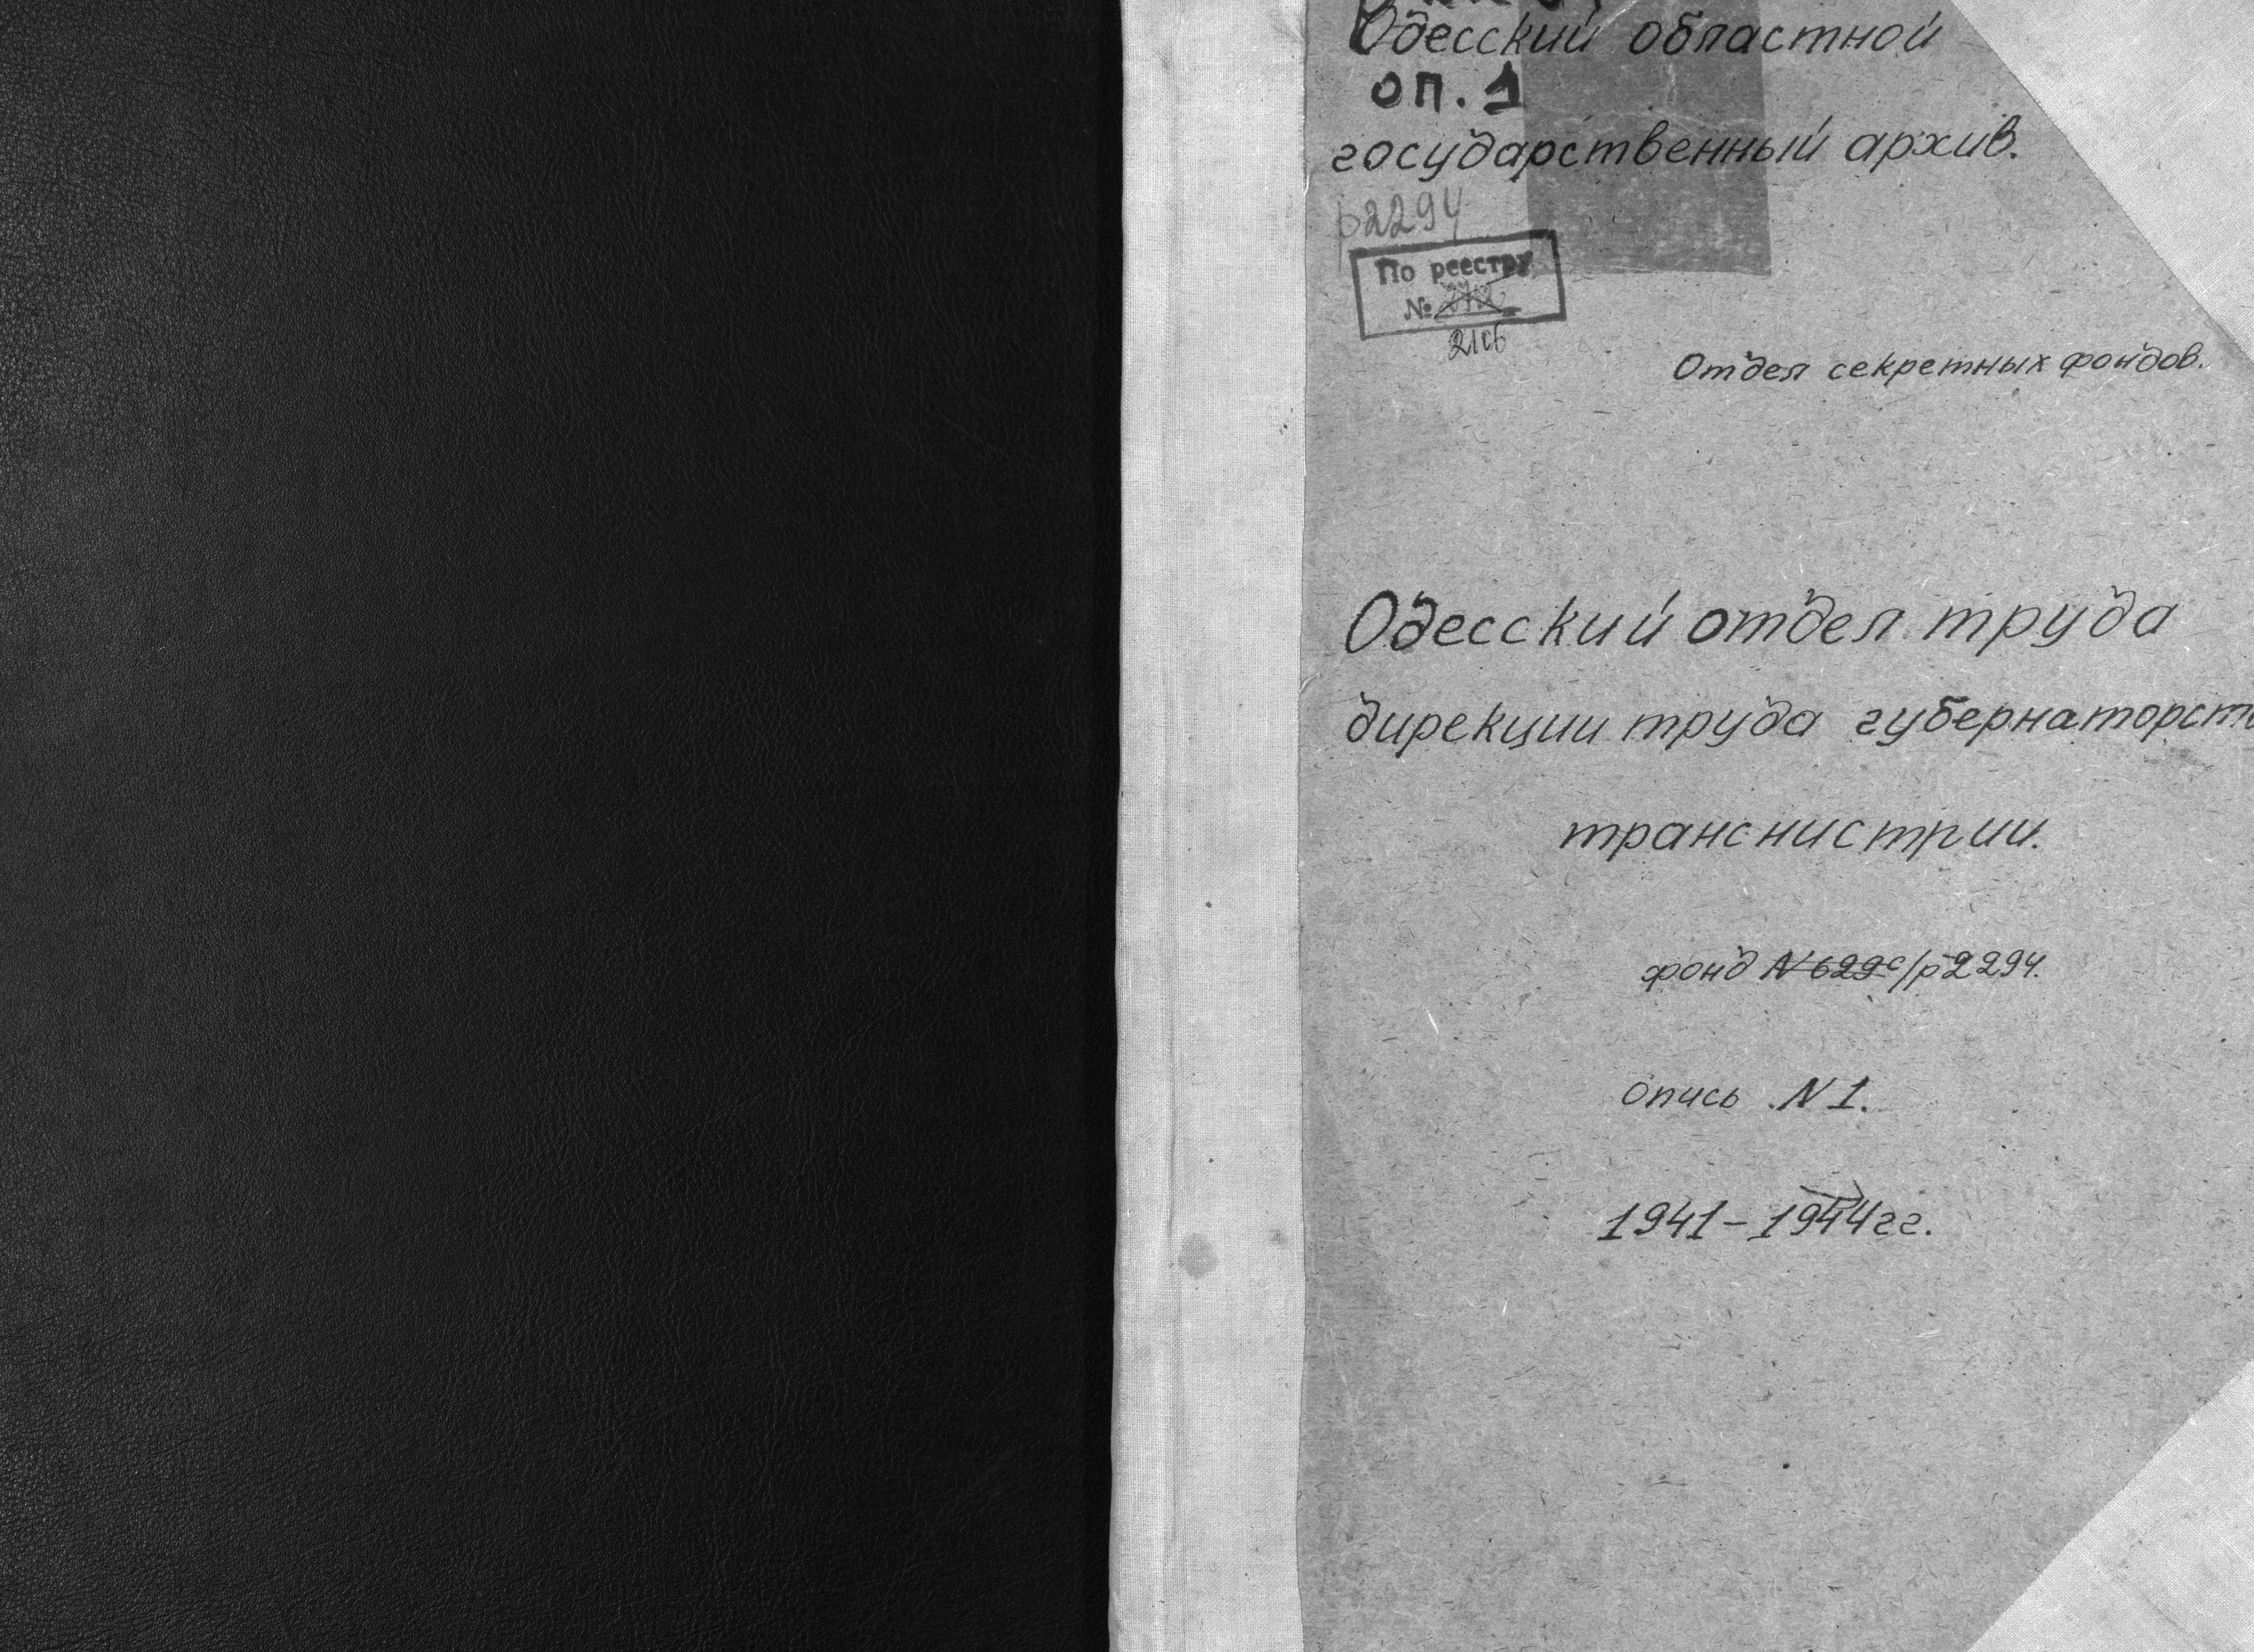 Одесский областной
оп. 1
государственный архив.
р2294
По реестру
№
2106
Отдел секретных фондов.
Одесский отдел труда
дирекции труда губернаторств
транснистрии.
фонд N 629с/р2294.
опись N1.
1941-1944гг.